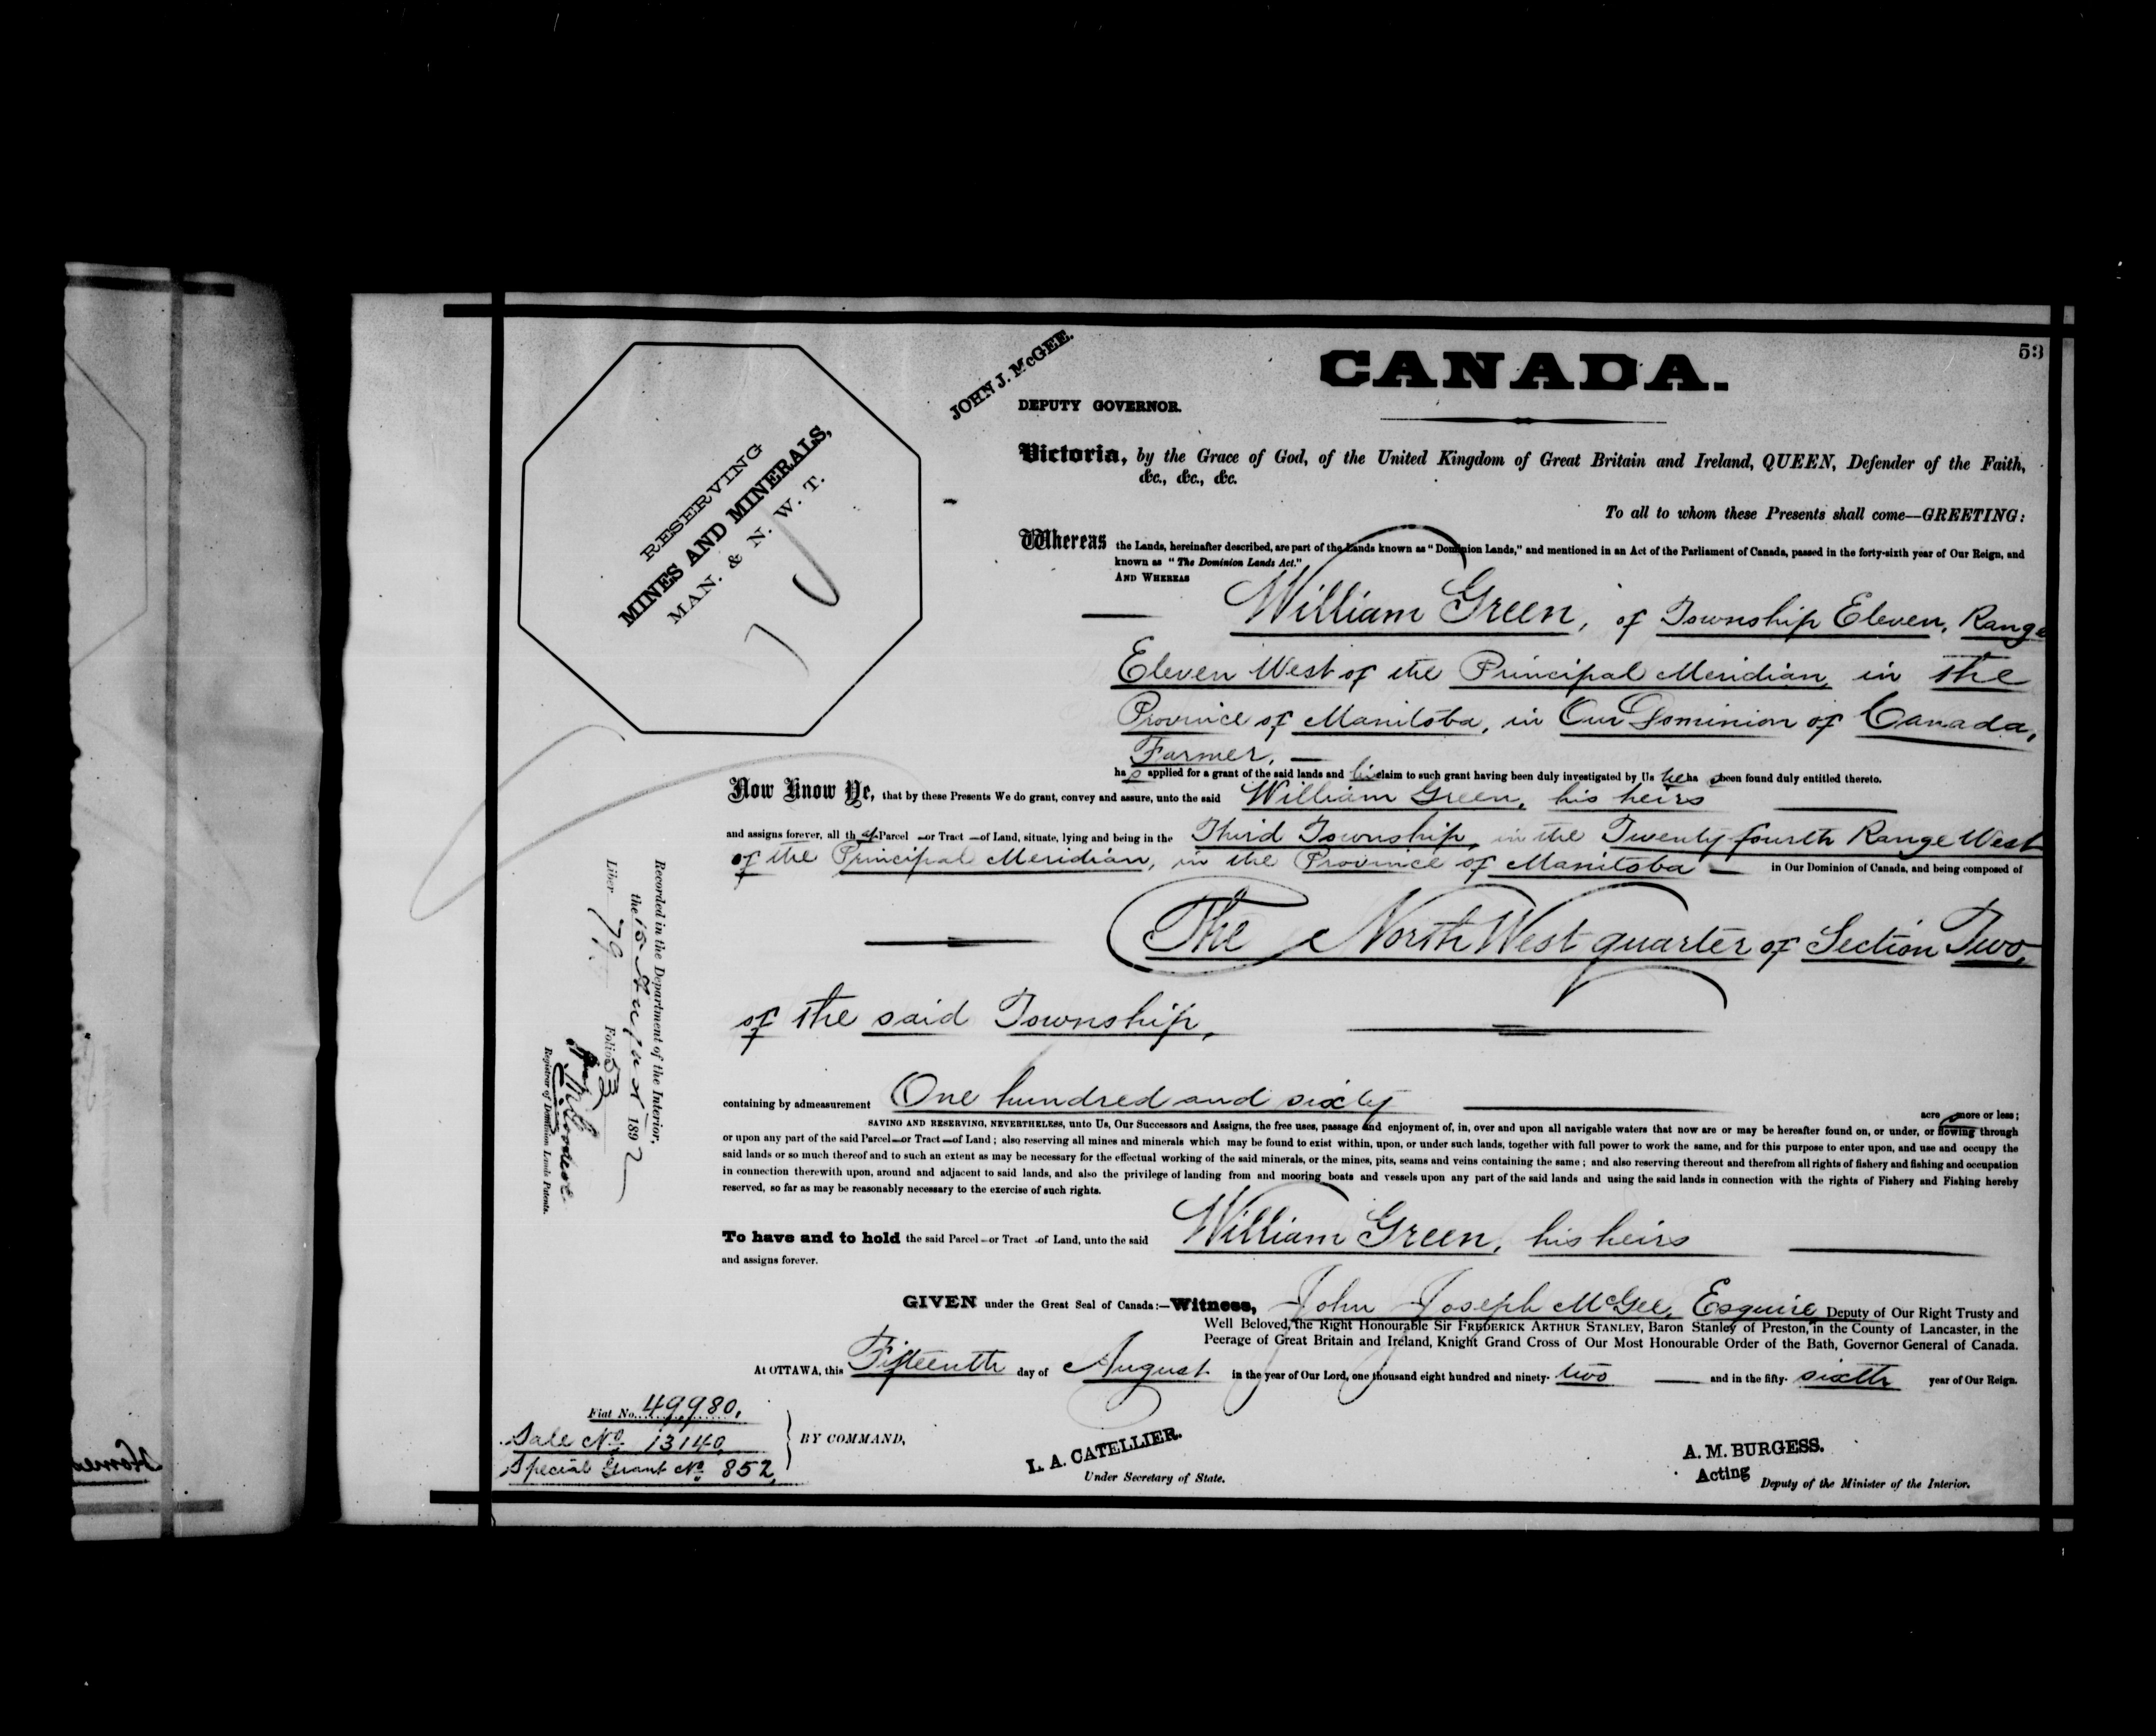 53
CANADA.
JOHN J. McGEE.
DEPUTY GOVERNOR.
RESERVING
MINES AND MINERALS,
MAN. & N. W. T.
Victoria, by the Grace of God, of the United Kingdom of Great Britain and Ireland, QUEEN, Defender of the Faith,
&c., &c., &c.
To all to whom these Presents shall come—GREETING:
Whereas the Lands, hereinafter described, are part of the Lands known as "Dominion Lands," and mentioned in an Act of the Parliament of Canada, passed in the forty-sixth year of Our Reign, and
known as "The Dominion Lands Act."
AND WHEREAS
William Green, of Township Eleven, Range
Eleven West of the Principal Meridian, in the
Province of Manitoba, in Our Dominion of Canada,
Farmer,
has applied for a grant of the said lands and his claim to such grant having been duly investigated by Us he has been found duly entitled thereto.
Now Know Ye, that by these Presents We do grant, convey and assure, unto the said William Green, his heirs
and assigns forever, all that Parcel or Tract of Land, situate, lying and being in the Third Township, in the Twenty-fourth Range West
of the Principal Meridian, in the Province of Manitoba in Our Dominion of Canada, and being composed of
The North West quarter of Section Two,
of the said Township,
containing by admeasurement One hundred and sixty acres more or less;
SAVING AND RESERVING, NEVERTHELESS, unto Us, Our Successors and Assigns, the free uses, passage and enjoyment of, in, over and upon all navigable waters that now are or may be hereafter found on, or under, or flowing through
or upon any part of the said Parcel or Tract of Land; also reserving all mines and minerals which may be found to exist within, upon, or under such lands, together with full power to work the same, and for this purpose to enter upon, and use and occupy the
said lands or so much thereof and to such an extent as may be necessary for the effectual working of the said minerals, or the mines, pits, seams and veins containing the same; and also reserving thereout and therefrom all rights of fishery and fishing and occupation
in connection therewith upon, around and adjacent to said lands, and also the privilege of landing from and mooring boats and vessels upon any part of the said lands and using the said lands in connection with the rights of Fishery and Fishing hereby
reserved, so far as may be reasonably necessary to the exercise of such rights.
To have and to hold the said Parcel or Tract of Land, unto the said William Green, his heirs
and assigns forever.
GIVEN under the Great Seal of Canada:—Witness, John Joseph McGee, Esquire Deputy of Our Right Trusty and
Well Beloved, the Right Honourable Sir FREDERICK ARTHUR STANLEY, Baron Stanley of Preston, in the County of Lancaster, in the
Peerage of Great Britain and Ireland, Knight Grand Cross of Our Most Honourable Order of the Bath, Governor General of Canada.
At OTTAWA, this Fifteenth day of August in the year of Our Lord, one thousand eight hundred and ninety-two and in the fifty-sixth year of Our Reign.
Fiat No. 49980.
Sale No. 13140
Special Grant No. 852
BY COMMAND,
L. A. CATELLIER.
Under Secretary of State.
A. M. BURGESS.
Acting Deputy of the Minister of the Interior.
Recorded in the Department of the Interior,
the 15 August 1892
Liber 79. Folio 53
Registrar of Dominion Lands Patents.